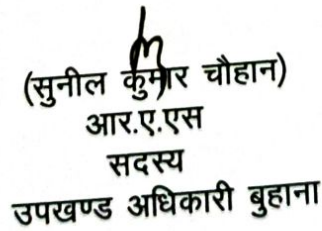 (सुनील कुमार चौहान)
आर.ए.एस
सदस्य
उपखण्ड अधिकारी बुहाना